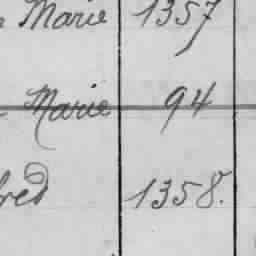 Marie 1357
Marie 94
1358.